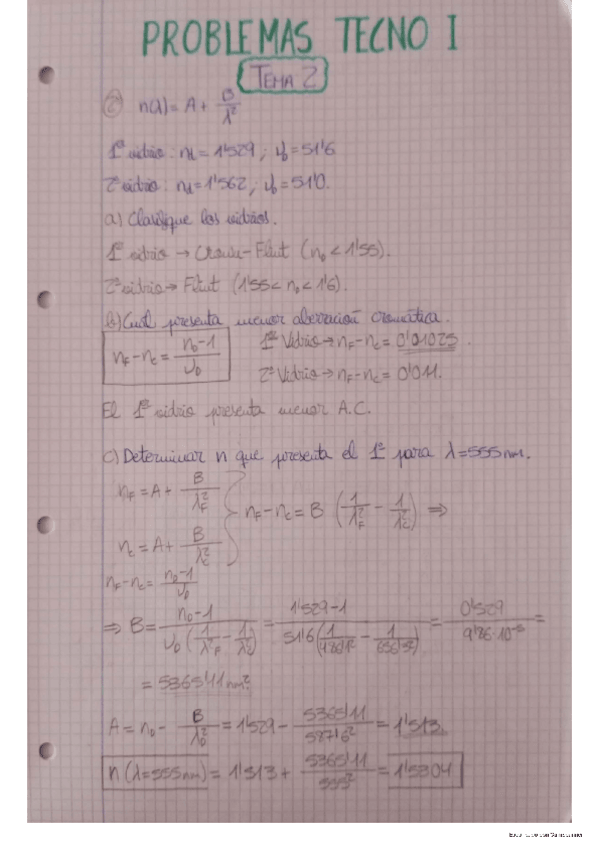 PROBLEMAS TECNO I
TEMA 2
② n(λ) = A + B/λ²
1º vidrio: nd = 1'529 ; υD = 51'6
2º vidrio: nd = 1'562 ; υD = 51'0.
a) Clasifique los vidrios.
1º vidrio → Crown-Flint (nD < 1'55).
2º vidrio → Flint (1'55 < nD < 1'6).
b) Cual presenta menor aberración cromática.
nF - nC = (nD - 1)/υD
1º Vidrio → nF - nC = 0'01025.
2º Vidrio → nF - nC = 0'011.
El 1º vidrio presenta menor A.C.
c) Determinar n que presenta el 1º para λ = 555 nm.
nF = A + B/λF²
nC = A + B/λC²
nF - nC = B (1/λF² - 1/λC²) ⇒
nF - nC = (nD - 1)/υD
⇒ B = (nD - 1)/(υD (1/λF² - 1/λC²)) = (1'529 - 1)/(51'6 (1/486'1² - 1/656'3²)) = 0'529/(9'86·10⁻⁵) =
= 5365'11 nm².
A = nD - B/λD² = 1'529 - 5365'11/587'6² = 1'513.
n (λ = 555 nm) = 1'513 + 5365'11/555² = 1'5304